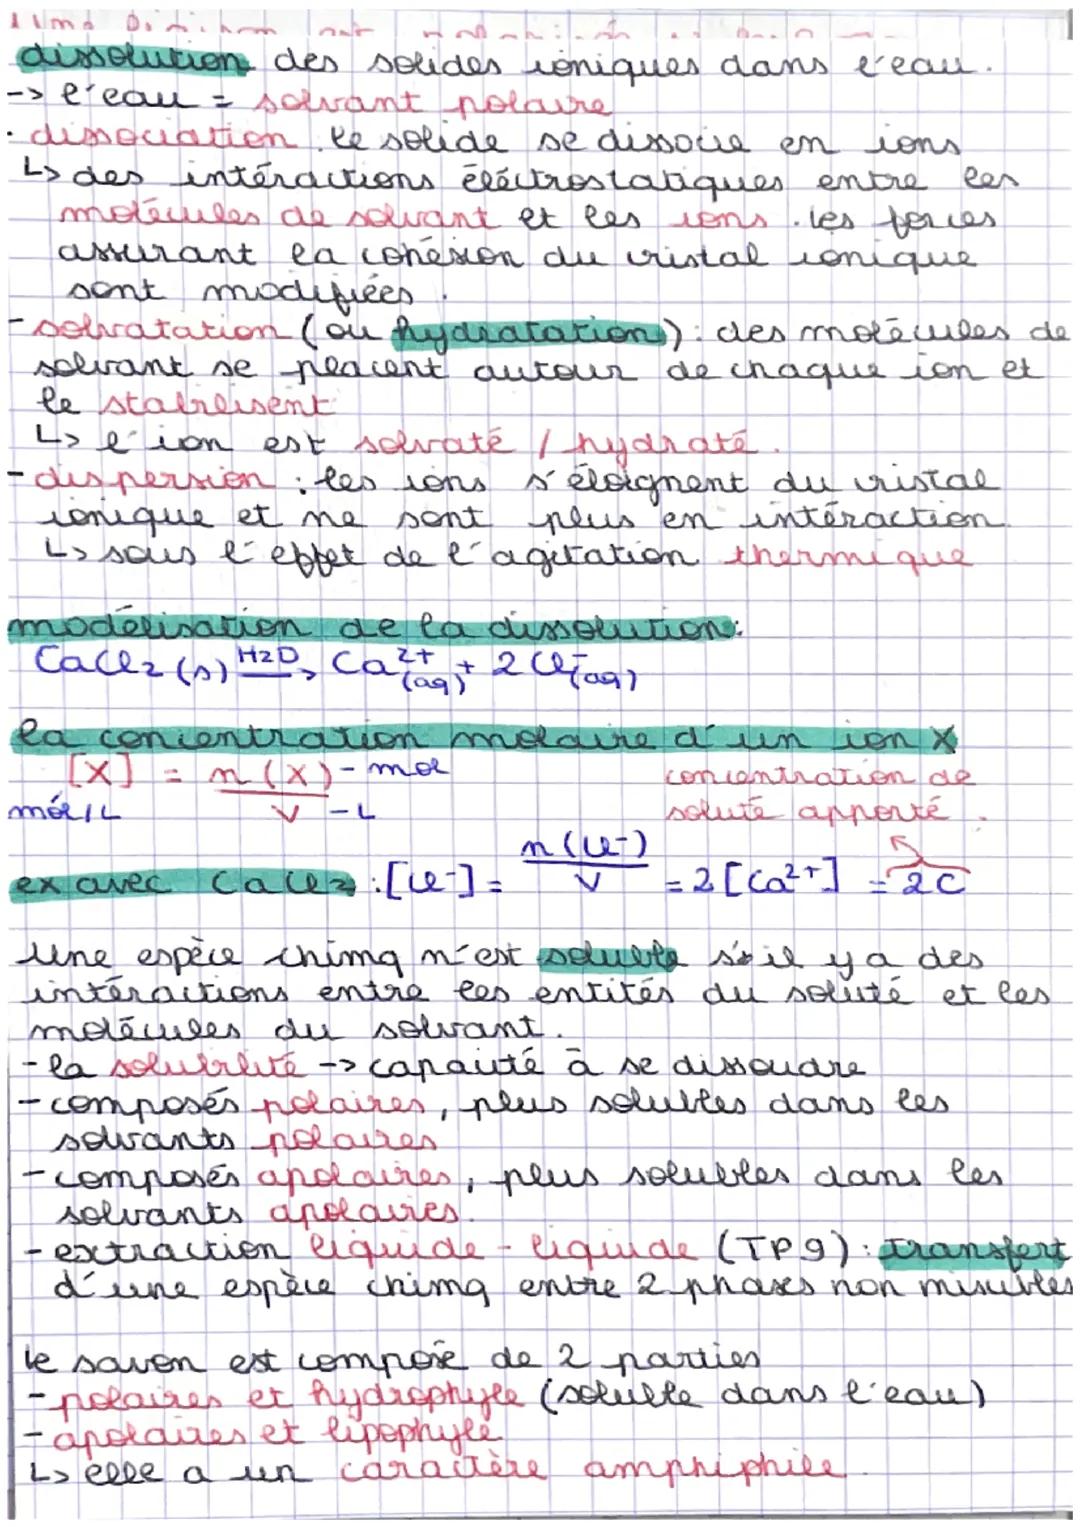 dissolution des solides ioniques dans l'eau.
-> l'eau = solvant polaire
- dissociation le solide se dissocie en ions
↳ des intéractions éléctrostatiques entre les
molécules de solvant et les ions. les forces
assurant la cohésion du cristal ionique
sont modifiées.
- solvatation (ou hydratation): des molécules de
solvant se placent autour de chaque ion et
le stabilisent
↳ l'ion est solvaté / hydraté.
- dispersion : les ions s'éloignent du cristal
ionique et ne sont plus en intéraction
↳ sous l'effet de l'agitation thermique
modélisation de la dissolution:
CaCl2 (s) H2O → Ca2+ (aq) + 2 Cl- (aq)
la concentration molaire d'un ion X
[X] = n (X) - mol
mol/L V - L
concentration de
soluté apporté.
ex avec CaCl2 : [Cl-] = n (Cl-) / V = 2 [Ca2+] = 2C
Une espèce chimq n'est soluble s'il y a des
intéractions entre les entités du soluté et les
molécules du solvant.
- la solubilité -> capacité à se dissoudre
- composés polaires, plus solubles dans les
solvants polaires
- composés apolaires, plus solubles dans les
solvants apolaires.
- extraction liquide - liquide (TP9) : transfert
d'une espèce chimq entre 2 phases non miscibles
le savon est composé de 2 parties
- polaires et hydrophyle (soluble dans l'eau)
- apolaires et lipophyle
↳ elle a un caractère amphiphile.